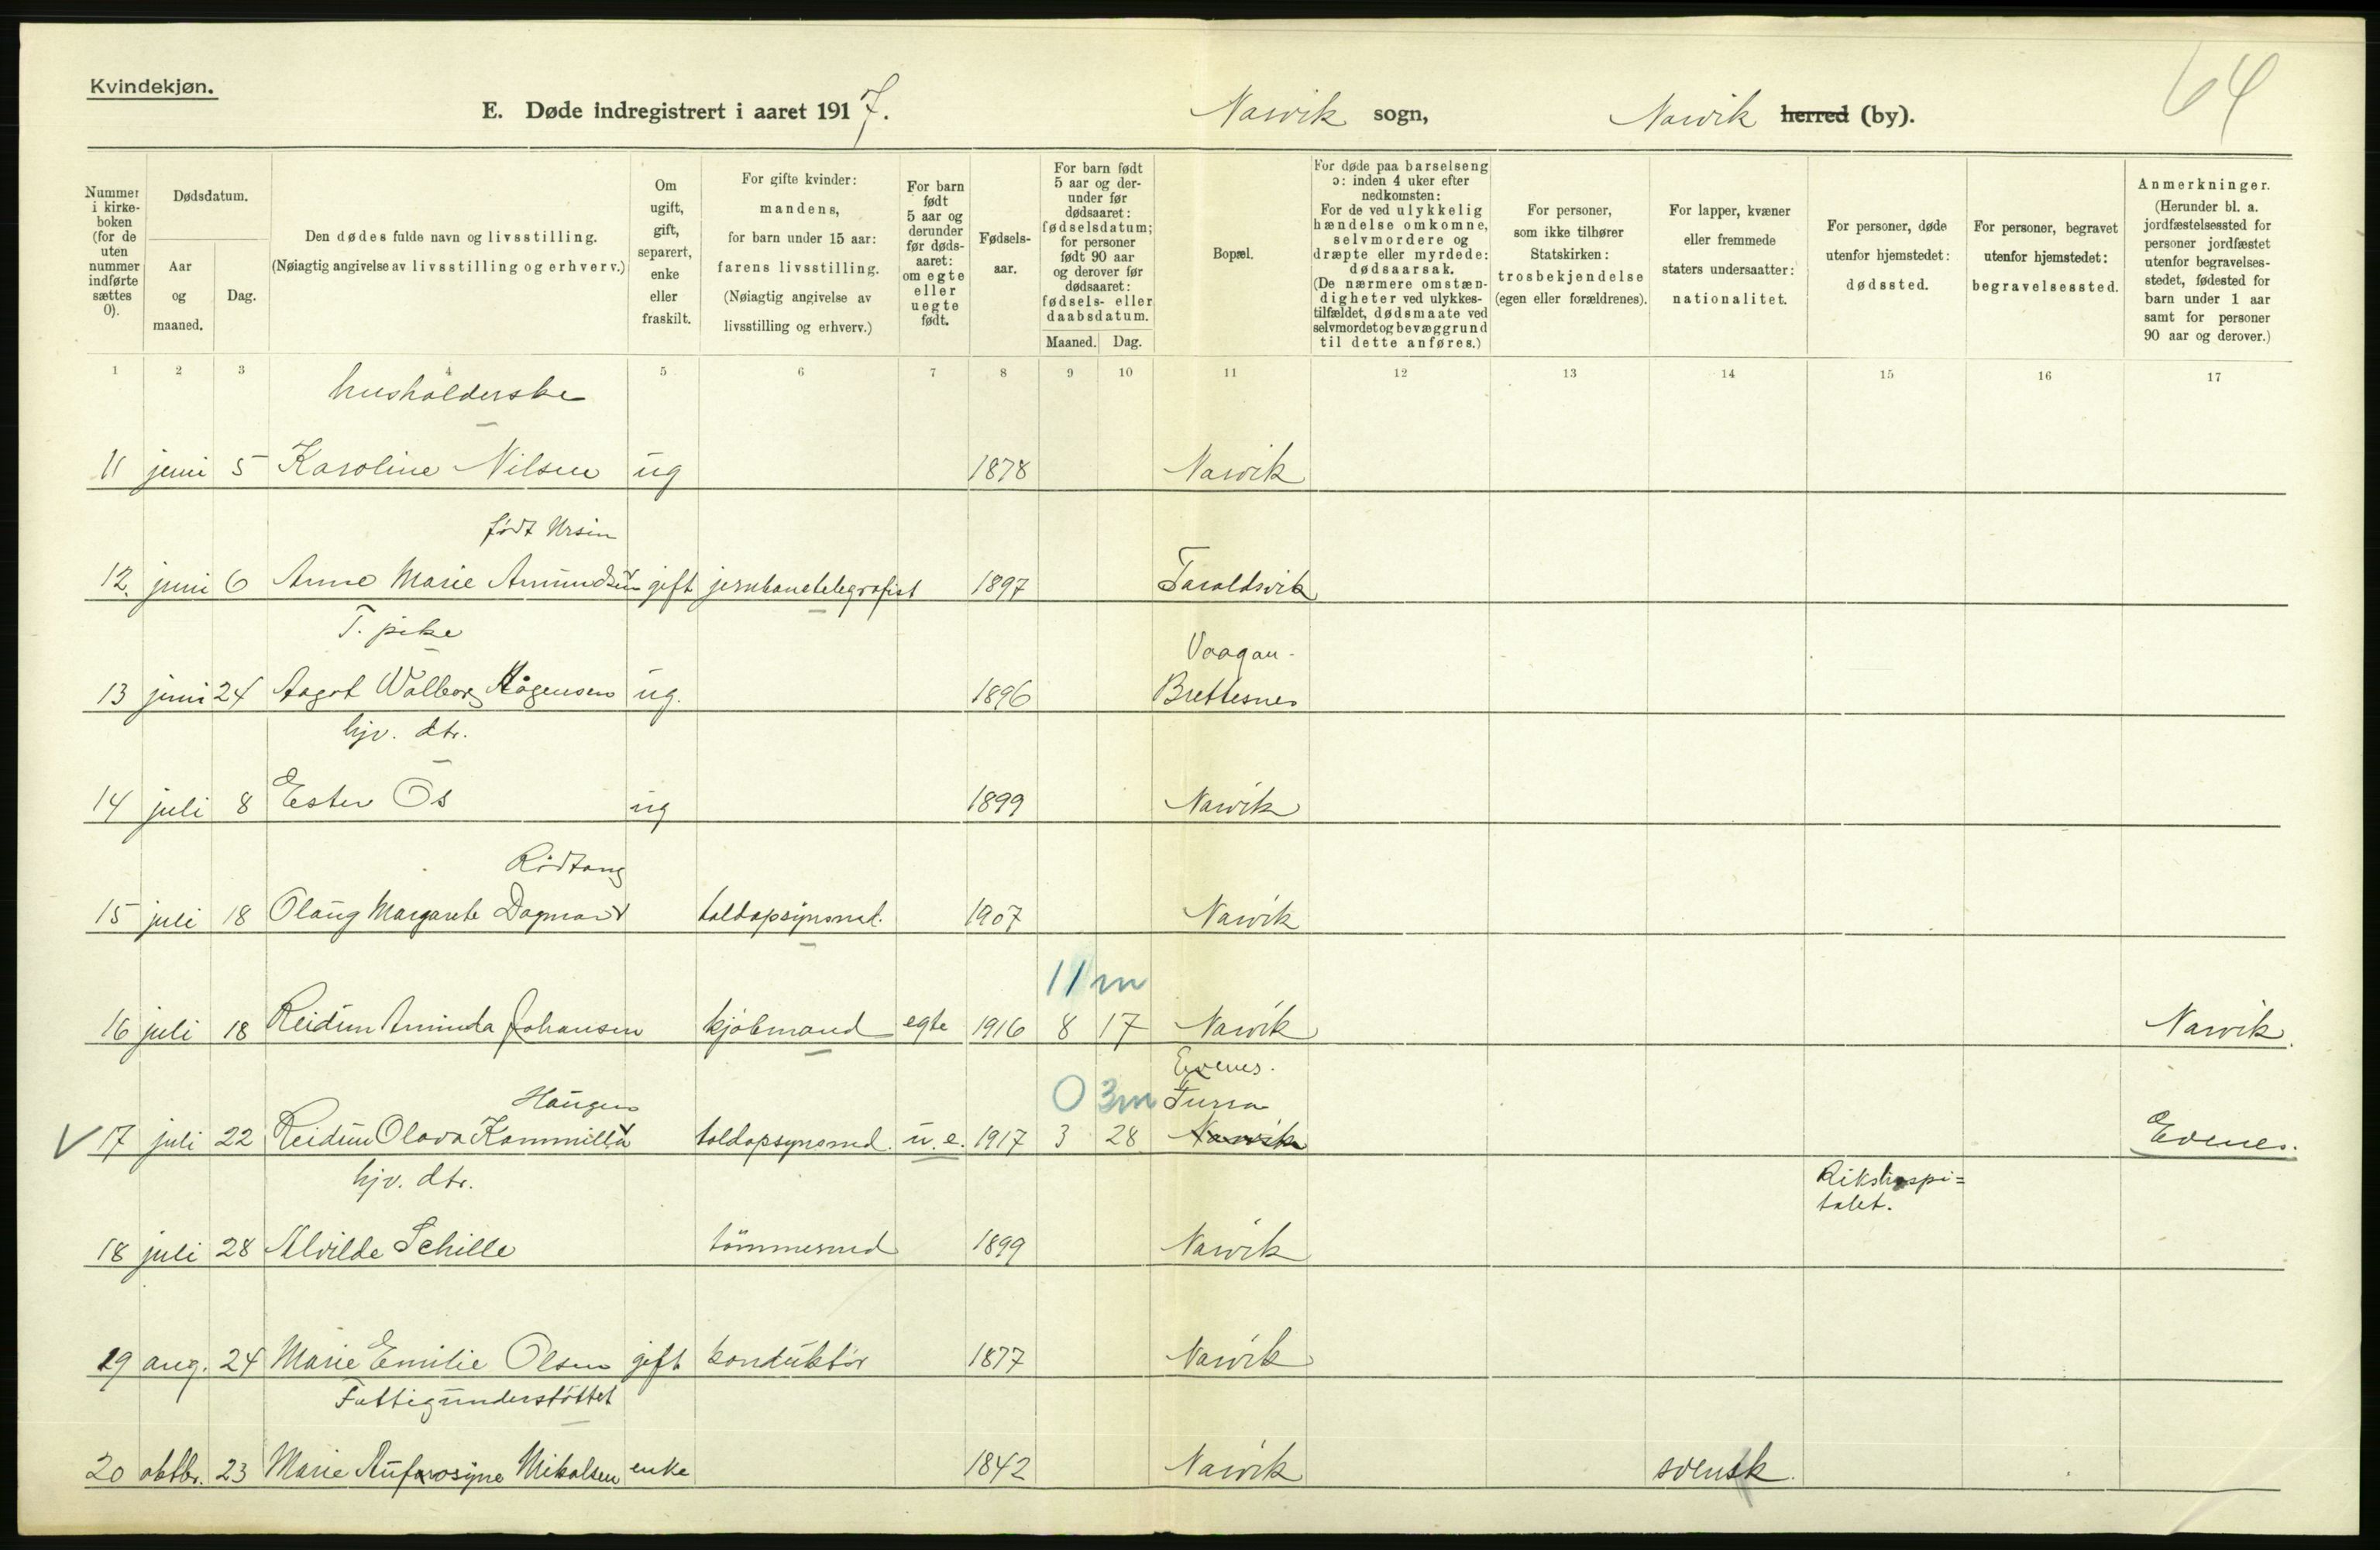 Kvindekjøn.
E. Døde indregistrert i aaret 1917. Narvik sogn, Narvik herred (by).
64
Nummer i kirke- boken (for de uten nummer indførte sættes 0).
Dødsdatum.
Aar og maaned.
Dag.
Den dødes fulde navn og livsstilling.
(Nøiagtig angivelse av livsstilling og erhverv.)
Om ugift, gift, separert, enke eller fraskilt.
For gifte kvinder: mandens, for barn under 15 aar: farens livsstilling. (Nøiagtig angivelse av livsstilling og erhverv.)
For barn født 5 aar og derunder før døds- aaret: om egte eller uegte født.
Fødsels- aar.
For barn født 5 aar og der- under før dødsaaret: fødselsdatum; for personer født 90 aar og derover før dødsaaret: fødsels- eller daabsdatum.
Maaned. Dag.
Bopæl.
For døde paa barselseng ɔ: inden 4 uker efter nedkomsten: For de ved ulykkelig hændelse omkomne, selvmordere og dræpte eller myrdede: dødsaarsak. (De nærmere omstæn- digheter ved ulykkes- tilfældet, dødsmaate ved selvmordet og bevæggrund til dette anføres.)
For personer, som ikke tilhører Statskirken: trosbekjendelse (egen eller forældrenes).
For lapper, kvæner eller fremmede staters undersaatter: nationalitet.
For personer, døde utenfor hjemstedet: dødssted.
For personer, begravet utenfor hjemstedet: begravelsessted.
Anmerkninger. (Herunder bl. a. jordfæstelsessted for personer jordfæstet utenfor begravelses- stedet, fødested for barn under 1 aar samt for personer 90 aar og derover.)
1 2 3 4 5 6 7 8 9 10 11 12 13 14 15 16 17
husholderske
11 juni 5 Karoline Nilsen ug 1878 Narvik
født Ursin
12. juni 6 Anne Marie Amundsen gift jernbanetelegrafist 1897 Taraldsvik
T. pike
Vaagan-
13 juni 24 Aagot Walborg Mogensen ug. 1896 Brettesnes
hjv. dtr.
14 juli 8 Ester Os ug 1899 Narvik
Rødtang
15 juli 18 Olaug Margarete Dagmar toldopsynsmd. 1907 Narvik
11 m
16 juli 18 Reidun Aminda Johansen kjøbmand egte 1916 8 17 Narvik Narvik.
Evenes.
Haugen 0 3m
17 juli 22 Reidun Olava Kammilla toldopsynsmd. u. e. 1917 3 28 Narvik Evenes.
hjv. dtr. Rikshospi=
talet.
18 juli 28 Alvilde Schille tømmermd 1899 Narvik
19 aug. 24 Marie Emilie Olsen gift konduktør 1877 Narvik
Fattigunderstøttet
20 oktbr. 23 Marie Mikalsen enke 1842 Narvik svensk.